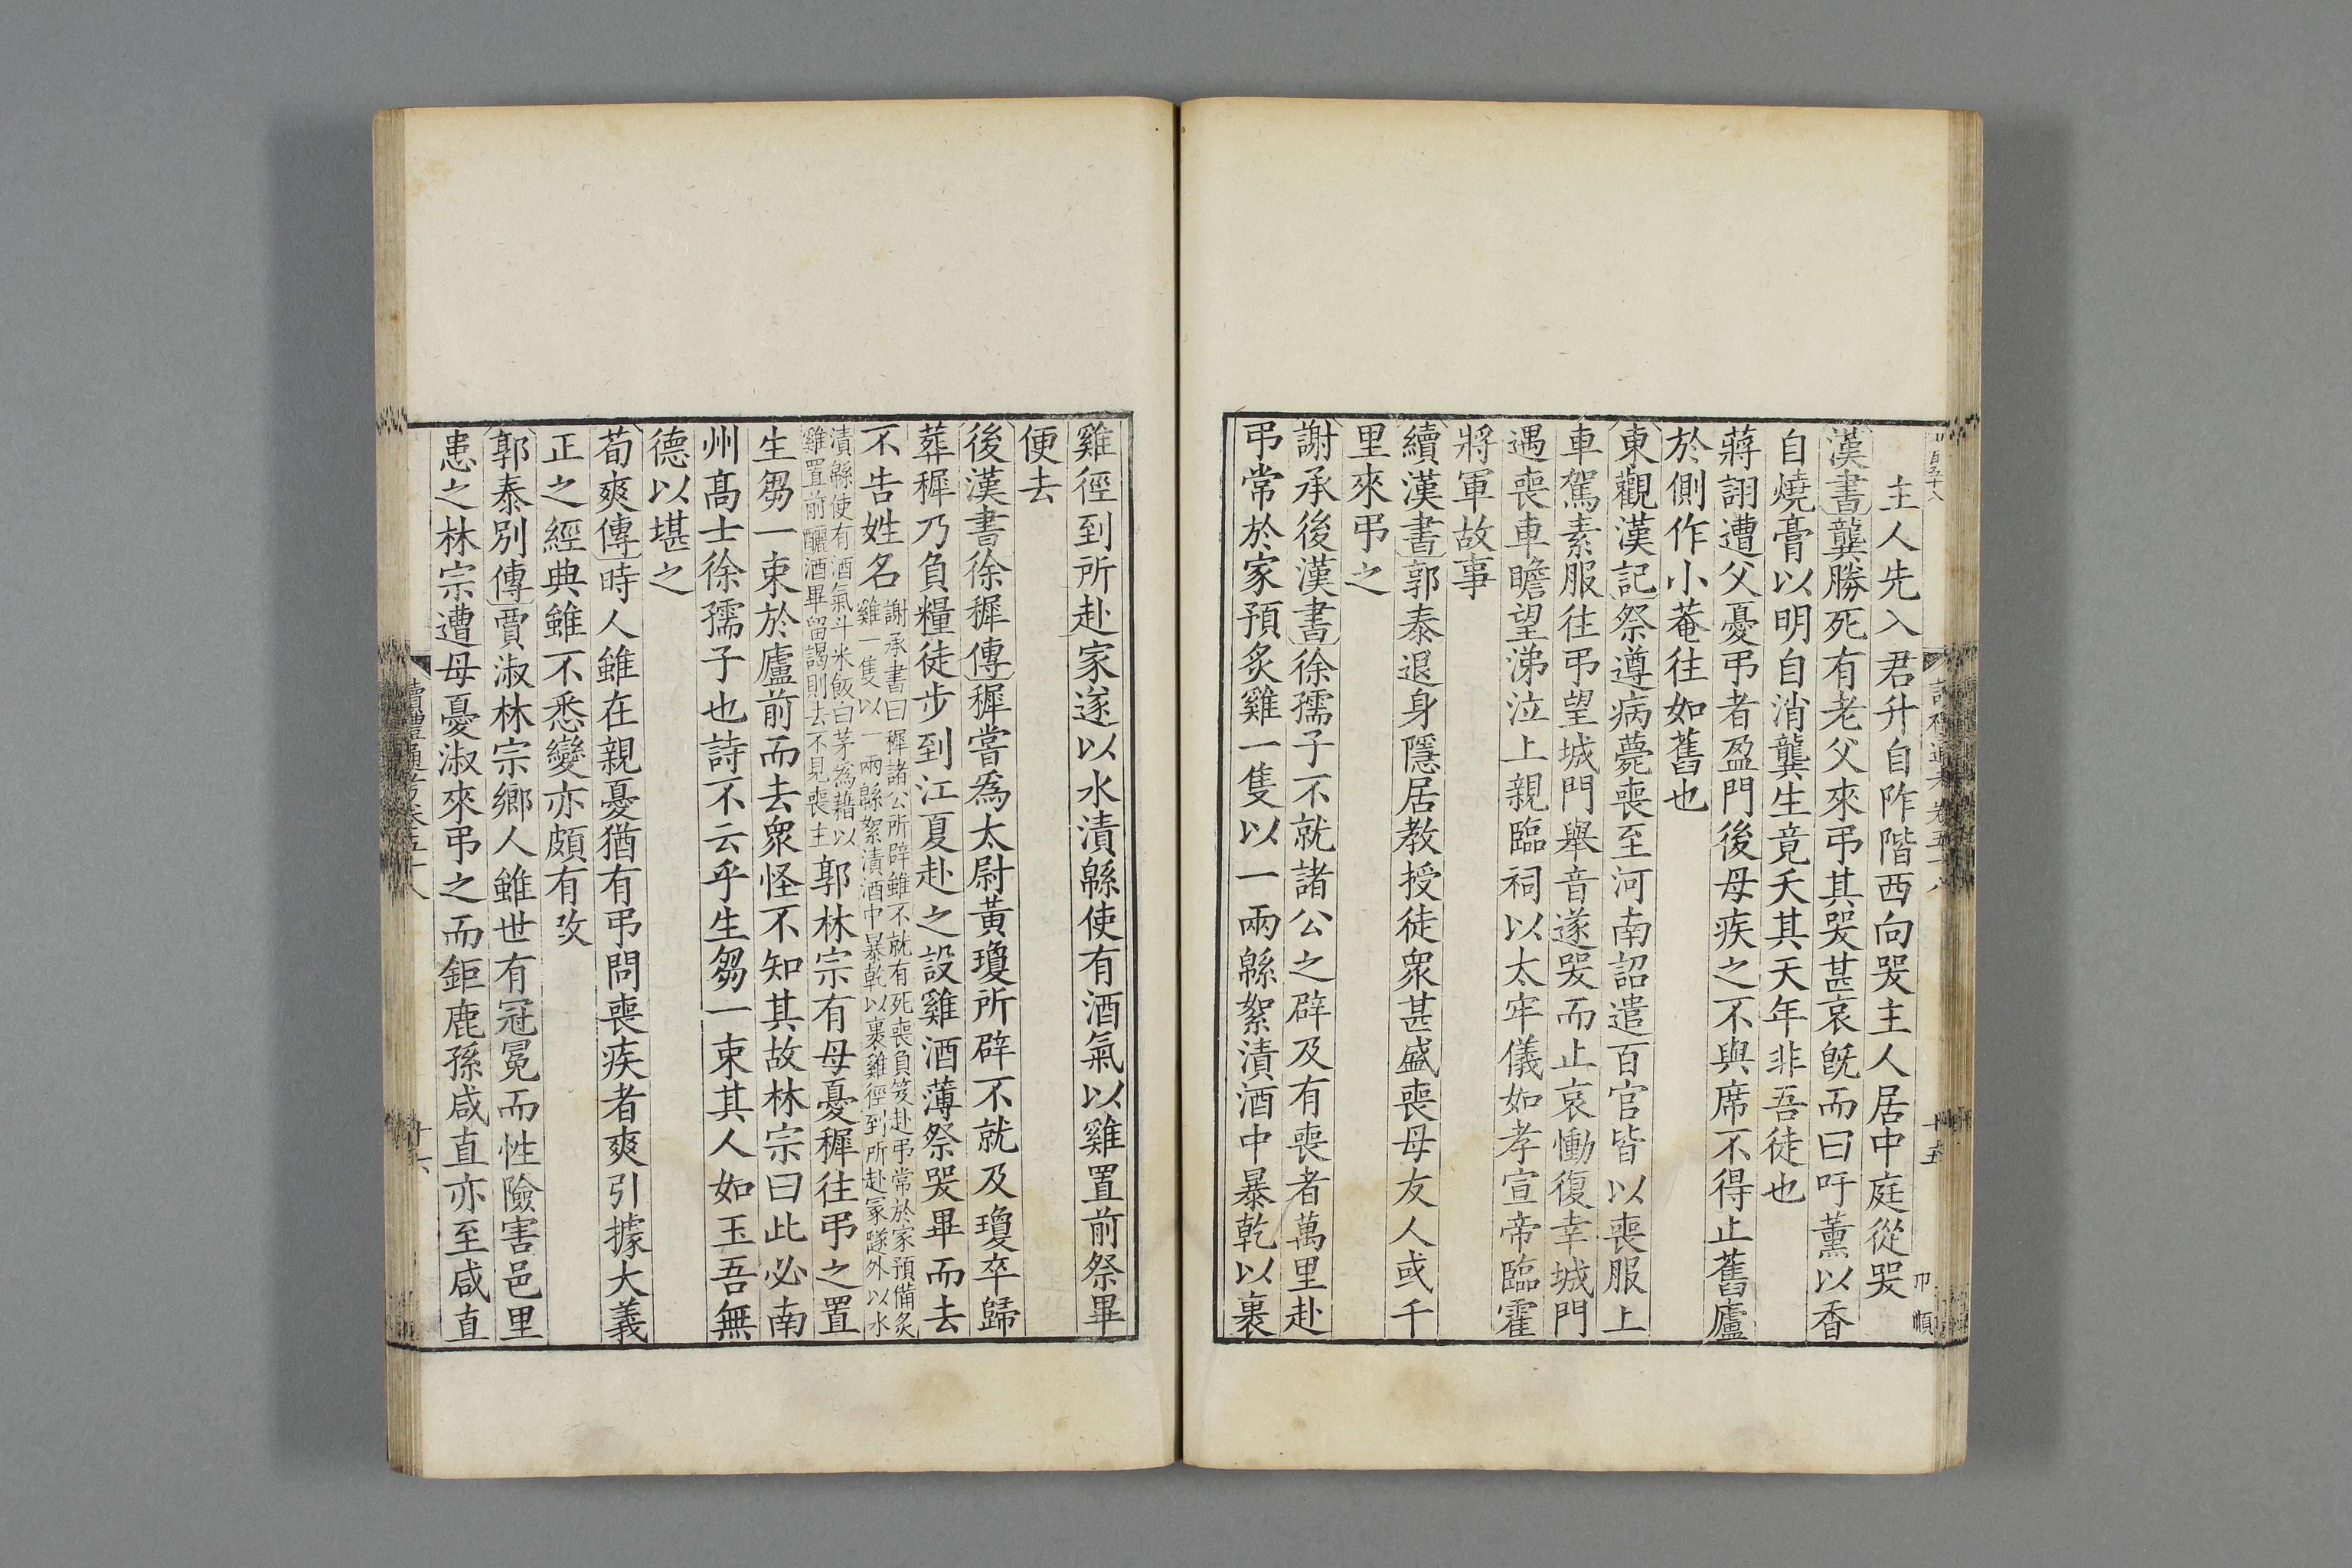 主人先入君升自阼階西向哭主人居中庭從哭
漢書龔勝死有老父來弔其哭甚哀旣而曰吁薰以香
自燒膏以明自消龔生竟夭其天年非吾徒也
蔣詡遭父憂弔者盈門後母疾之不與席不得止舊廬
於側作小菴往如舊也
東觀漢記祭遵病薨喪至河南詔遣百官皆以喪服上
車駕素服往弔望城門舉音遂哭而止哀慟復幸城門
遇喪車瞻望涕泣上親臨祠以太牢儀如孝宣帝臨霍
將軍故事
續漢書郭泰退身隱居教授徒衆甚盛喪母友人或千
里來弔之
謝承後漢書徐孺子不就諸公之辟及有喪者萬里赴
弔常於家預炙雞一隻以一兩緜絮漬酒中暴乾以裹
雞徑到所赴家遂以水漬緜使有酒氣以雞置前祭畢
便去
後漢書徐穉傳穉嘗爲太尉黃瓊所辟不就及瓊卒歸
葬穉乃負糧徒步到江夏赴之設雞酒薄祭哭畢而去
不告姓名謝承書曰穉諸公所辟雖不就有死喪負笈赴弔常於家預備炙
雞一隻以一兩緜絮漬酒中暴乾以裹雞徑到所赴冢隧外以水
漬緜使有酒氣斗米飯白茅爲藉以
雞置前釃酒畢留謁則去不見喪主郭林宗有母憂穉往弔之置
生芻一束於廬前而去衆怪不知其故林宗曰此必南
州高士徐孺子也詩不云乎生芻一束其人如玉吾無
德以堪之
荀爽傳時人雖在親憂猶有弔問喪疾者爽引據大義
正之經典雖不悉變亦頗有攺
郭泰別傳賈淑林宗鄉人雖世有冠冕而性險害邑里
患之林宗遭母憂淑來弔之而鉅鹿孫咸直亦至咸直
讀禮通考卷五十八
十六